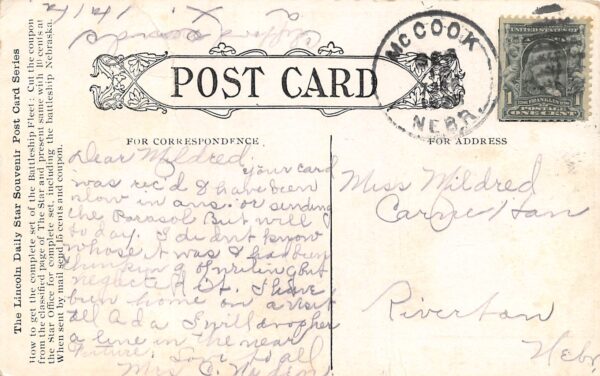 The Lincoln Daily Star Souvenir Post Card Series
How to get the complete set of the Battleship Fleet: Cut the coupon
from the classified page of The Star and present same with 10 cents at
the Star Office for complete set, including the battleship Nebraska.
When sent by mail send 15 cents and coupon.
POST CARD
McCOOK
NEBR.
ONE CENT
FOR CORRESPONDENCE
FOR ADDRESS
Dear Mildred,
your card
was rec'd & have been
slow in ans. or sending
the Parasol But will
to day. I didn't know
whose it was & had been
thinking of writing but
negected it. I have
been home on a visit
Ada I will drop her
a line in the near
Future. Love to all
Mrs. C.
Miss Mildred
Carnahan
Riverton
Nebr